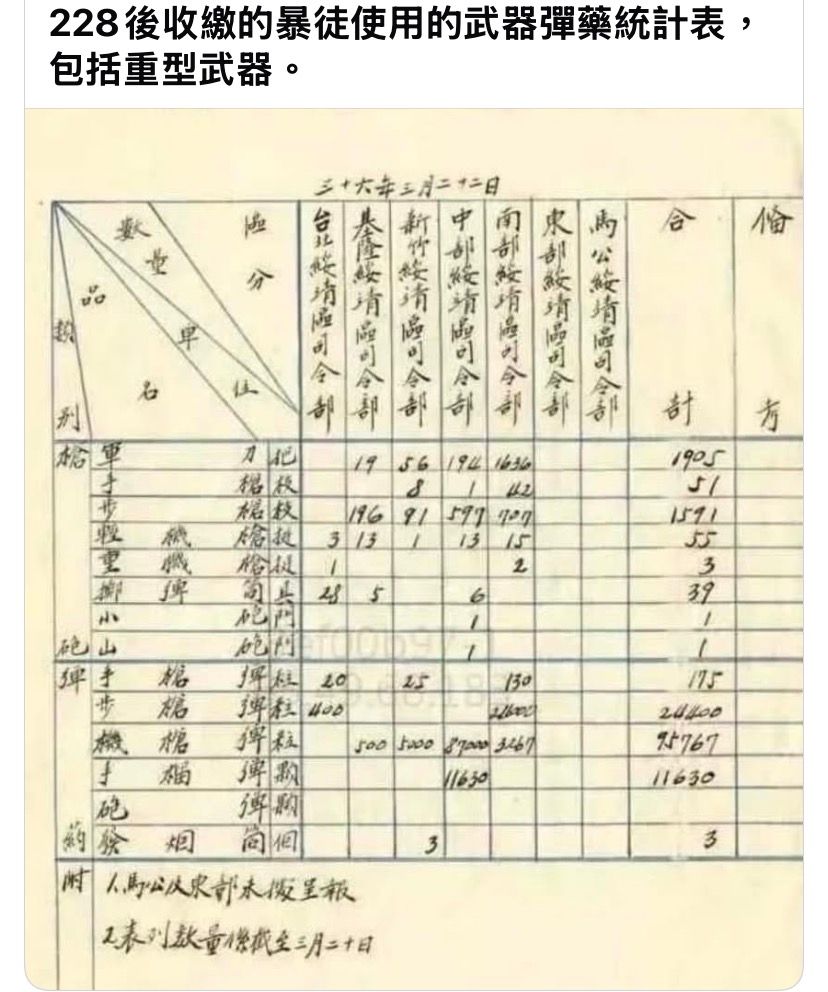 228後收繳的暴徒使用的武器彈藥統計表，
包括重型武器。
三十六年三月二十二日
數量 區分
品名 單位
類別
台北綏靖區司令部
基隆綏靖區司令部
新竹綏靖區司令部
中部綏靖區司令部
南部綏靖區司令部
東部綏靖區司令部
馬公綏靖區司令部
合計
備考
槍 軍刀 把 19 56 194 1636 1905
手槍 枝 8 1 42 51
步槍 枝 196 91 597 707 1591
輕機槍 挺 3 13 1 13 15 55
重機槍 挺 1 2 3
擲彈筒 具 28 5 6 39
小砲 門 1 1
砲 山砲 門 1 1
彈 手槍彈 粒 20 25 130 175
步槍彈 粒 400 24000 24400
機槍彈 粒 500 5000 87000 3267 95767
手榴彈 顆 11630 11630
砲彈 顆
藥 發烟筒 個 3 3
附 1.馬公及東部未據呈報
2.表列數量係截至三月二十日